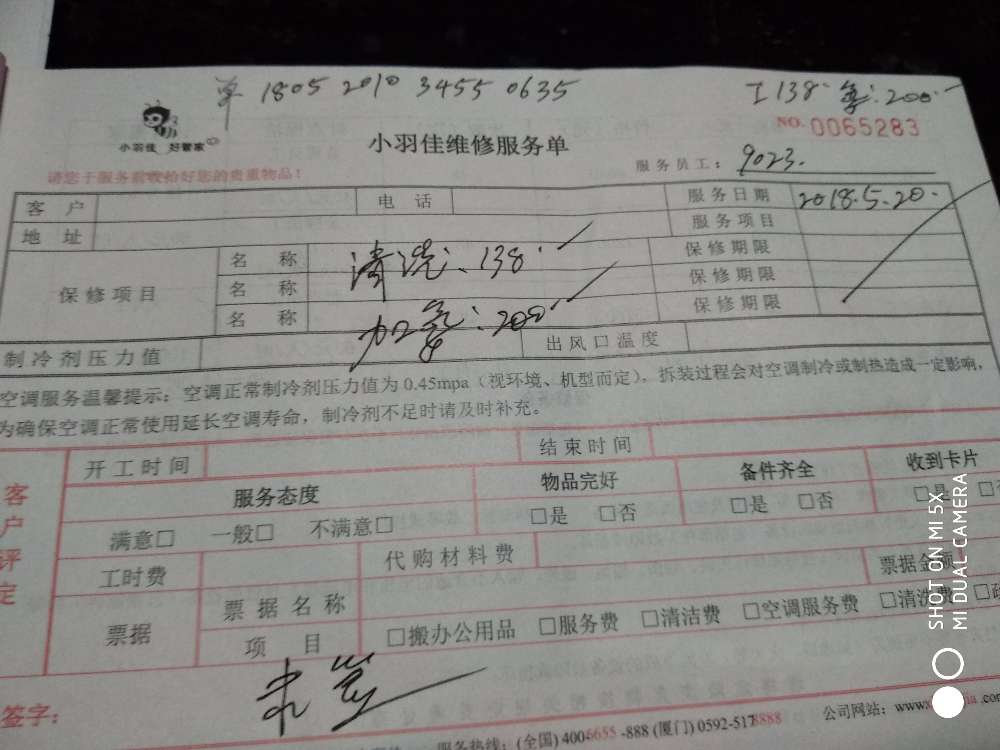 单 1805 2010 3455 0635
工138. 氟:200.
小羽佳 好管家
小羽佳维修服务单
NO. 0065283
请您于服务前收拾好您的贵重物品!
服务员工: 9023.
客户 电话 服务日期 2018.5.20.
地址 服务项目
保修项目 名称 清洗:138. 保修期限
名称 保修期限
名称 加氟:200. 保修期限
制冷剂压力值 出风口温度
空调服务温馨提示:空调正常制冷剂压力值为0.45mpa(视环境、机型而定),拆装过程会对空调制冷或制热造成一定影响,
为确保空调正常使用延长空调寿命,制冷剂不足时请及时补充。
客户评定
开工时间 结束时间
服务态度 物品完好 备件齐全 收到卡片
满意□ 一般□ 不满意□ □是 □否 □是 □否 □是 □否
工时费 代购材料费 票据金额
票据 票据名称
项目 □搬办公用品 □服务费 □清洁费 □空调服务费 □清洗费
签字:
服务热线:(全国)4006655-888(厦门)0592-5178888 公司网站:www
SHOT ON MI 5X
MI DUAL CAMERA